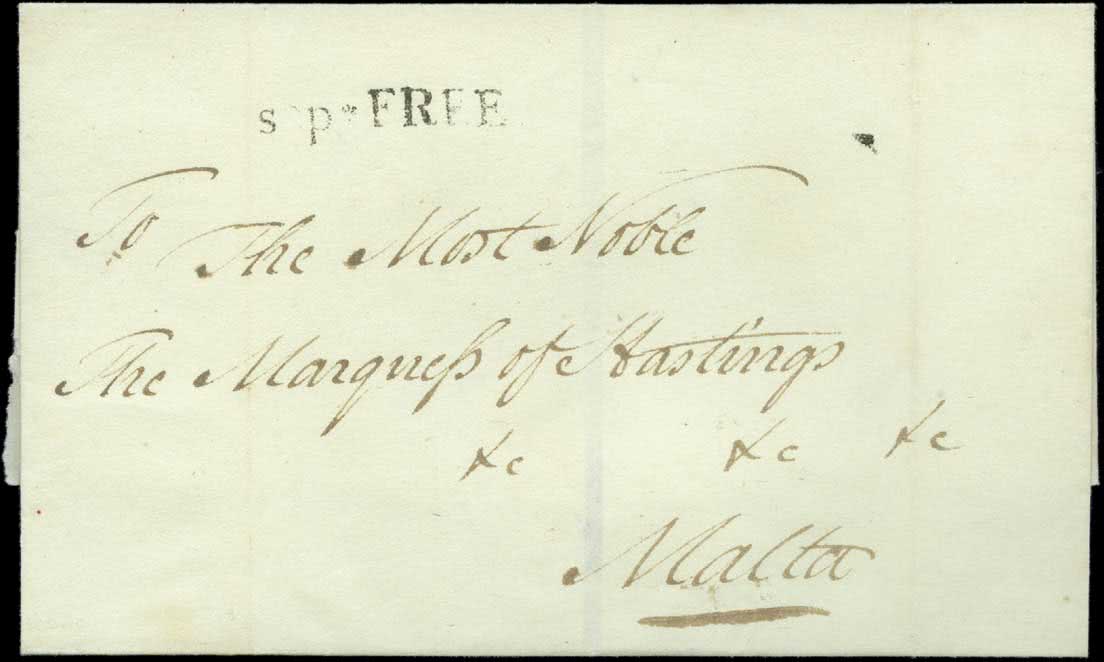 FREE
To The Most Noble
The Marqueſs of Hastings
&c &c &c
Malta